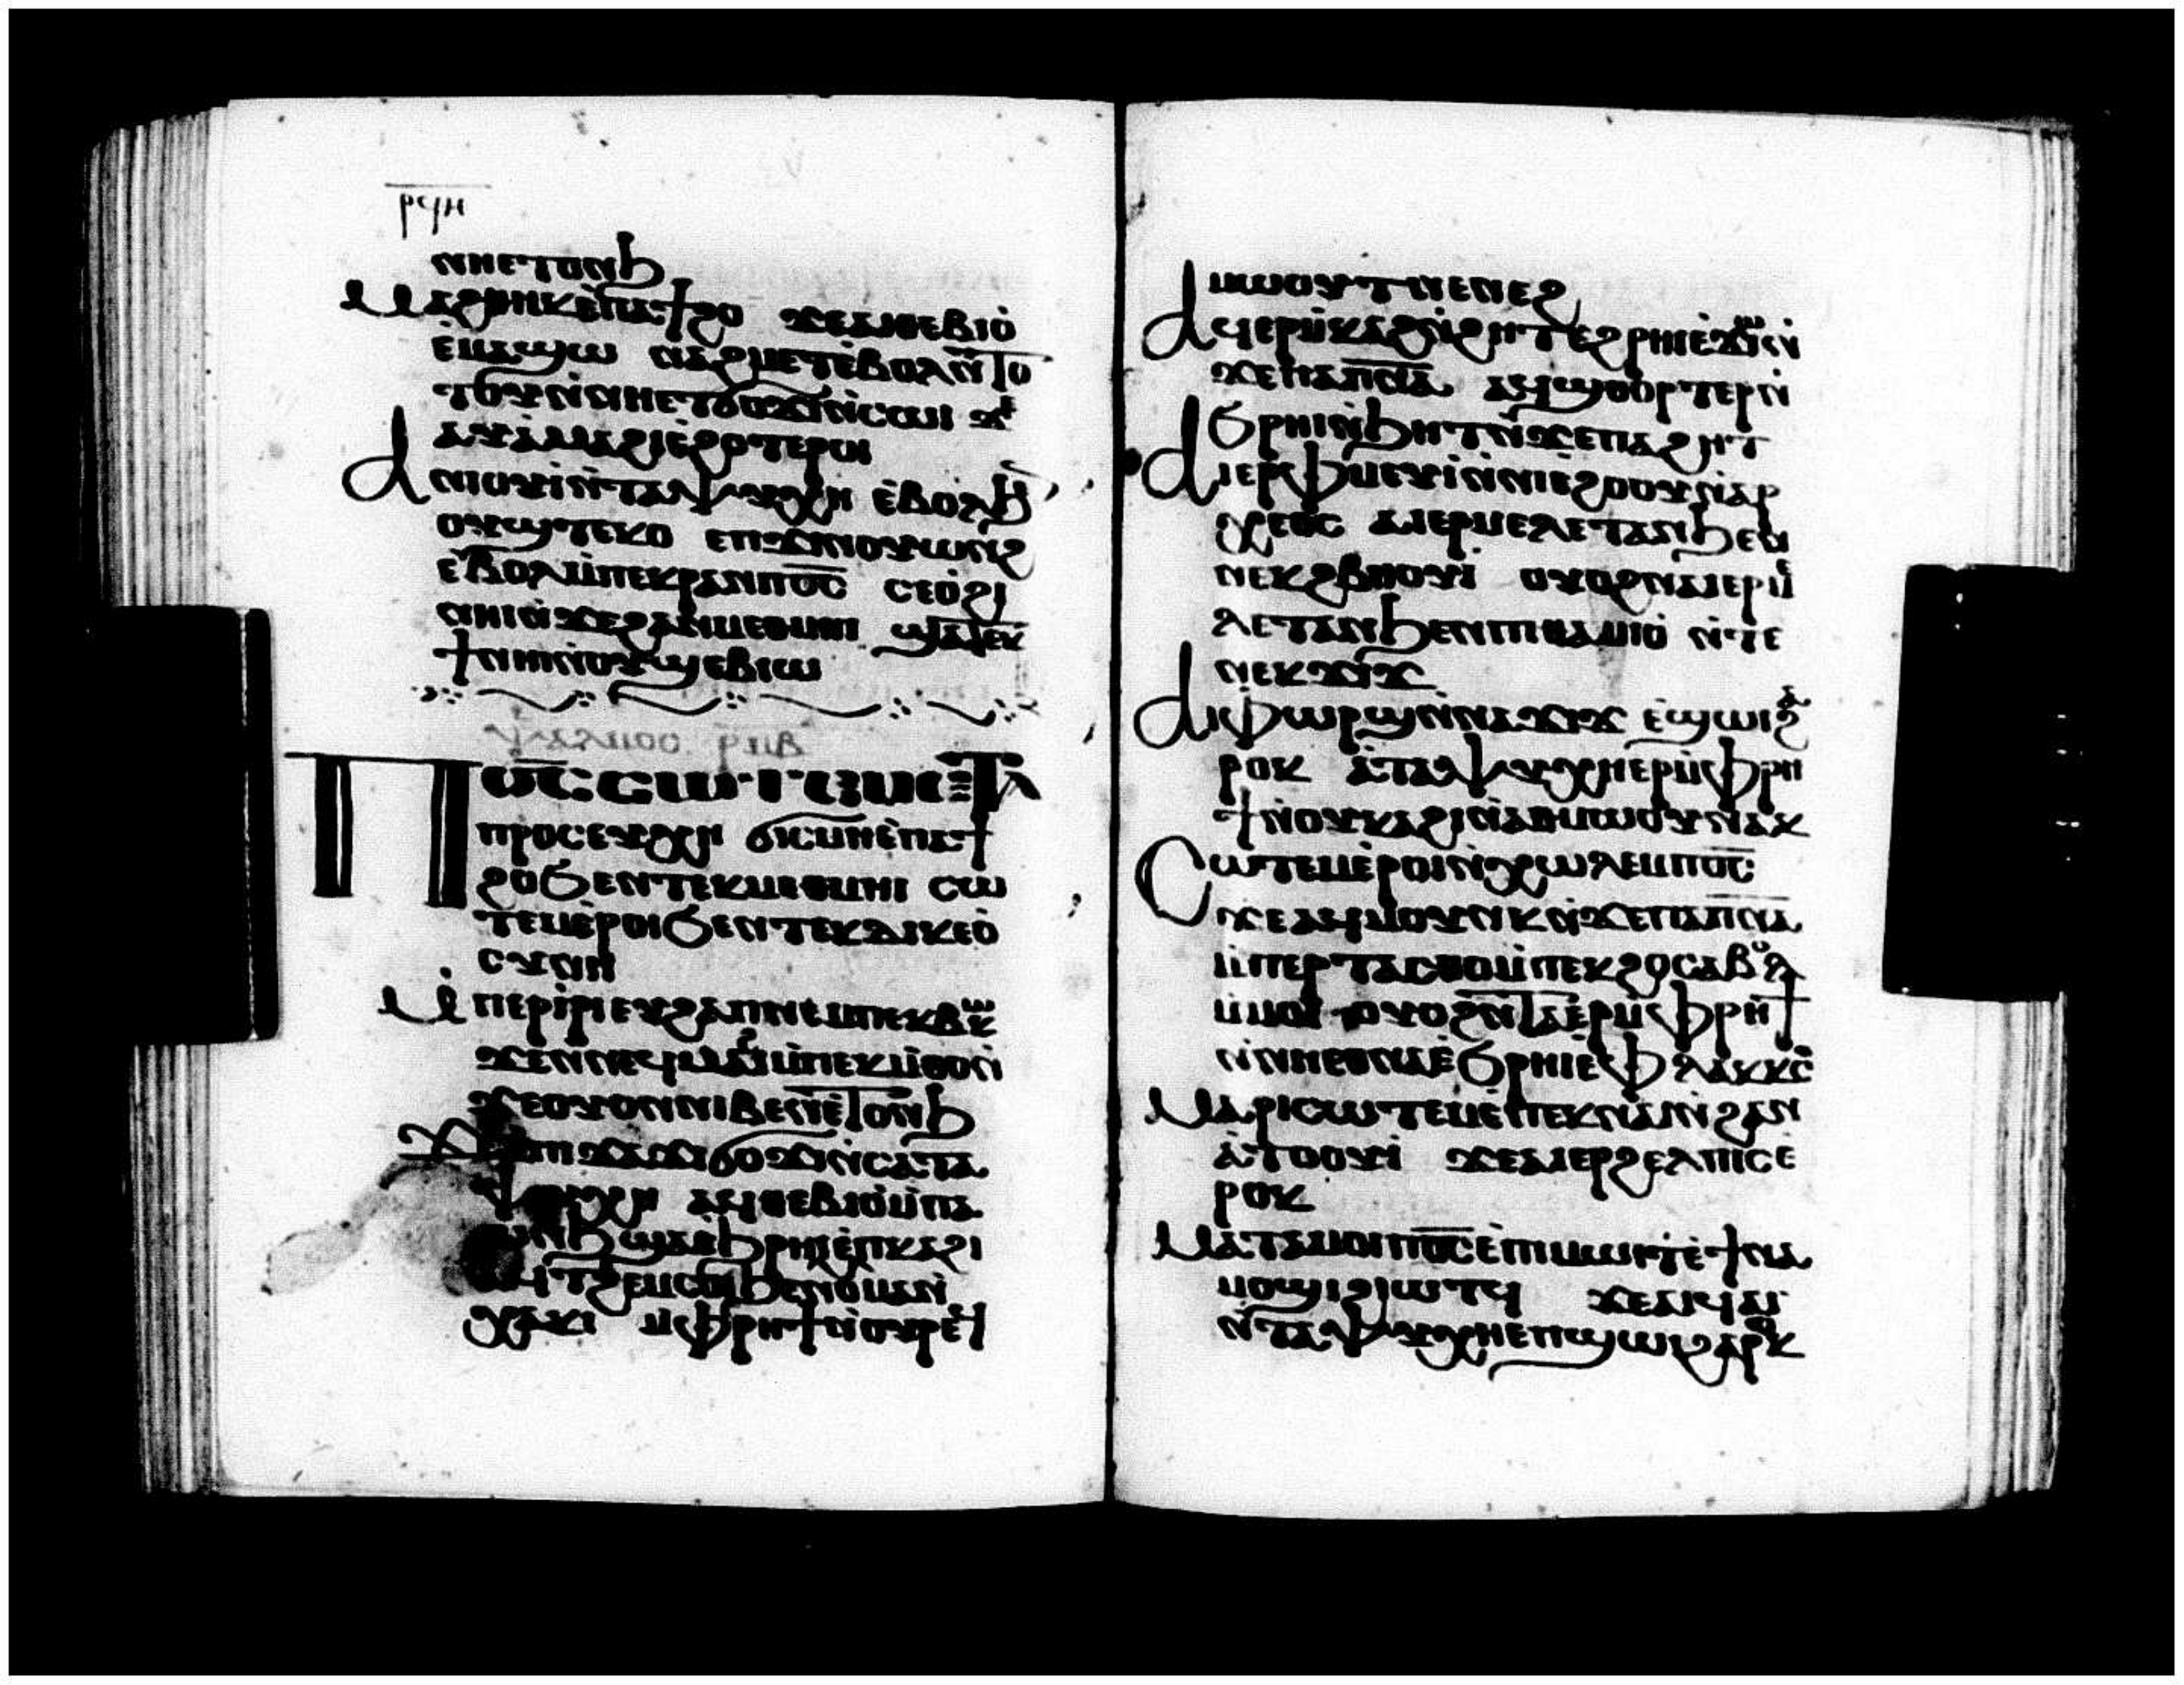 ⲣϥⲏ
ⲛⲏⲉⲧⲟⲛϧ
Ⲙⲁϩⲑⲏⲕ ⲉ̀ⲡⲁϯϩⲟ ϫⲉⲁⲓⲑⲉⲃⲓⲟ̀
ⲉ̀ⲙⲁϣⲱ ⲛⲁϩⲙⲉⲧ ⲉ̀ⲃⲟⲗ ⲛ̀ⲧⲟ
ⲧⲟⲩ ⲛ̀ⲛⲏⲉⲧϭⲟϫⲓ ⲛ̀ⲥⲱⲓ ϫⲉ
ⲁⲩⲁ̀ⲙⲁϩⲓ ⲉ̀ϩⲟⲧⲉⲣⲟⲓ
Ⲁⲛⲓⲟⲩⲓ̀ ⲛ̀ⲧⲁⲯⲩⲭⲏ ⲉ̀ⲃⲟⲗϧ
ⲟⲩϣⲧⲉⲕⲟ ⲉⲡϫⲓⲛⲟⲩⲱⲛϩ
ⲉ̀ⲃⲟⲗ ⲙ̀ⲡⲉⲕⲣⲁⲛ ⲡⲟ̅ⲥ̅ ⲥⲉⲟ̀ϩⲓ
ⲛⲏⲓ ⲛ̀ϫⲉϩⲁⲛⲙⲉⲑⲙⲏⲓ ϣⲁⲧⲉⲕ
ϯⲛⲏⲓ ⲛ̀ⲟⲩϣⲉⲃⲓⲱ
ⲯⲁⲗⲙⲟⲥ ⲣⲙⲃ
Ⲡⲟ̅ⲥ̅ ⲥⲱⲧⲉⲙ ⲉⲧⲁ
ⲡⲣⲟⲥⲉⲩⲭⲏ ϭⲓⲥⲙⲏ ⲉ̀ⲡⲁϯ
ϩⲟ ϧⲉⲛⲧⲉⲕⲙⲉⲑⲙⲏⲓ ⲥⲱ
ⲧⲉⲙ ⲉ̀ⲣⲟⲓ ϧⲉⲛⲧⲉⲕⲇⲓⲕⲉⲟ̀
ⲥⲩⲛⲏ
Ⲙ̀ⲡⲉⲣⲓ̀ ⲣⲓⲉⲩϩⲁⲡ ⲛⲉⲙⲡⲉⲕⲃⲱⲕ
ϫⲉⲛⲛⲉϥⲙⲁⲓ ⲙ̀ⲡⲉⲕⲙ̀ⲑⲟ ⲛ̀
ϫⲉⲟⲩⲟⲛ ⲛⲓⲃⲉⲛ ⲉ̀ⲧⲟⲛϧ
ϫⲉⲁⲡⲓϫⲁϫⲓ ϭⲟϫⲓ ⲛ̀ⲥⲁⲧⲁ
ⲯⲩⲭⲏ ⲁϥⲑⲉⲃⲓⲟ̀ ⲙ̀ⲡⲁ
ⲱⲛϧ ϣⲁⲉ̀ϧⲣⲏⲓ ⲉ̀ⲡⲕⲁϩⲓ
ⲁϥⲧϩⲉⲙⲥⲟⲓ ϧⲉⲛⲟⲩⲙⲁⲛ̀
ⲭⲁⲕⲓ ⲙ̀ⲫⲣⲏϯ ⲛ̀ⲟⲩⲣⲉϥ
ⲙⲱⲟⲩⲧ ⲛ̀ⲉⲛⲉϩ
Ⲁϥⲉⲣⲙ̀ⲕⲁϩ ⲛ̀ϩⲏⲧ ⲉ̀ϩⲣⲏⲓ ⲉ̀ϫⲱⲓ ⲛ̀
ϫⲉⲡⲁⲡ̅ⲛ̅ⲁ̅ ⲁϥϣⲑⲟⲣⲧⲉⲣ ⲛ̀
ϧⲣⲏⲓ ⲛ̀ϧⲏⲧ ⲛ̀ϫⲉⲡⲁϩⲏⲧ
Ⲁⲓⲉⲣⲫⲙⲉⲩⲓ̀ ⲛ̀ⲛⲓⲉ̀ϩⲟⲟⲩ ⲛ̀ⲁⲣ
ⲭⲉⲟⲥ ⲁⲓⲉⲣⲙⲉⲗⲉⲧⲁⲛ ϧⲉⲛ
ⲛⲉⲕϩⲃⲏⲟⲩⲓ̀ ⲟⲩⲟϩ ⲛⲁⲓⲉⲣⲙⲉ
ⲗⲉⲧⲁⲛ ϧⲉⲛⲡⲓⲑⲁⲙⲓⲟ̀ ⲛ̀ⲧⲉ
ⲛⲉⲕϫⲓϫ
Ⲁⲓⲫⲱⲣϣ ⲛ̀ⲛⲁϫⲓϫ ⲉ̀ⲡϣⲱⲓ ϩⲁ
ⲣⲟⲕ ⲁ̀ⲧⲁⲯⲩⲭⲏ ⲉⲣⲙ̀ⲫⲣⲏ
ϯ ⲛ̀ⲟⲩⲕⲁϩⲓ ⲛ̀ⲁⲑⲙⲱⲟⲩ ⲛⲁⲕ
Ⲥⲱⲧⲉⲙ ⲉ̀ⲣⲟⲓ ⲛ̀ⲭⲱⲗⲉⲙ ⲡⲟ̅ⲥ̅
ϫⲉⲁϥⲙⲟⲩⲛⲕ ⲛ̀ϫⲉⲡⲁⲡ̅ⲛ̅ⲁ̅
ⲙ̀ⲡⲉⲣⲧⲁⲥⲑⲟ ⲙ̀ⲡⲉⲕϩⲟ ⲥⲁⲃⲟⲗ
ⲙ̀ⲙⲟⲓ ⲟⲩⲟϩ ⲛ̀ⲧⲁⲉ̀ⲣⲙ̀ⲫⲣⲏϯ
ⲛ̀ⲛⲏⲉⲑⲛⲁⲉ̀ϧⲣⲏⲓ ⲉ̀ⲫⲗⲁⲕⲕⲟⲥ
Ⲙⲁⲣⲓⲥⲱⲧⲉⲙ ⲉ̀ⲡⲉⲕⲛⲁⲓ ⲛ̀ϩⲁⲛ
ⲁ̀ⲧⲟⲟⲩⲓ̀ ϫⲉⲁⲓⲉⲣϩⲉⲗⲡⲓⲥ ⲉ̀
ⲣⲟⲕ
Ⲙⲁⲧⲁⲙⲟⲓ ⲡⲟ̅ⲥ̅ ⲉ̀ⲡⲓⲙⲱⲓⲧ ⲉ̀ϯⲛⲁ
ⲙⲟϣⲓ ϩⲓⲱⲧϥ ϫⲉⲁⲓϥⲁⲓ
ⲛ̀ⲧⲁⲯⲩⲭⲏ ⲉ̀ⲡϣⲱⲓ ϩⲁⲣⲟⲕ